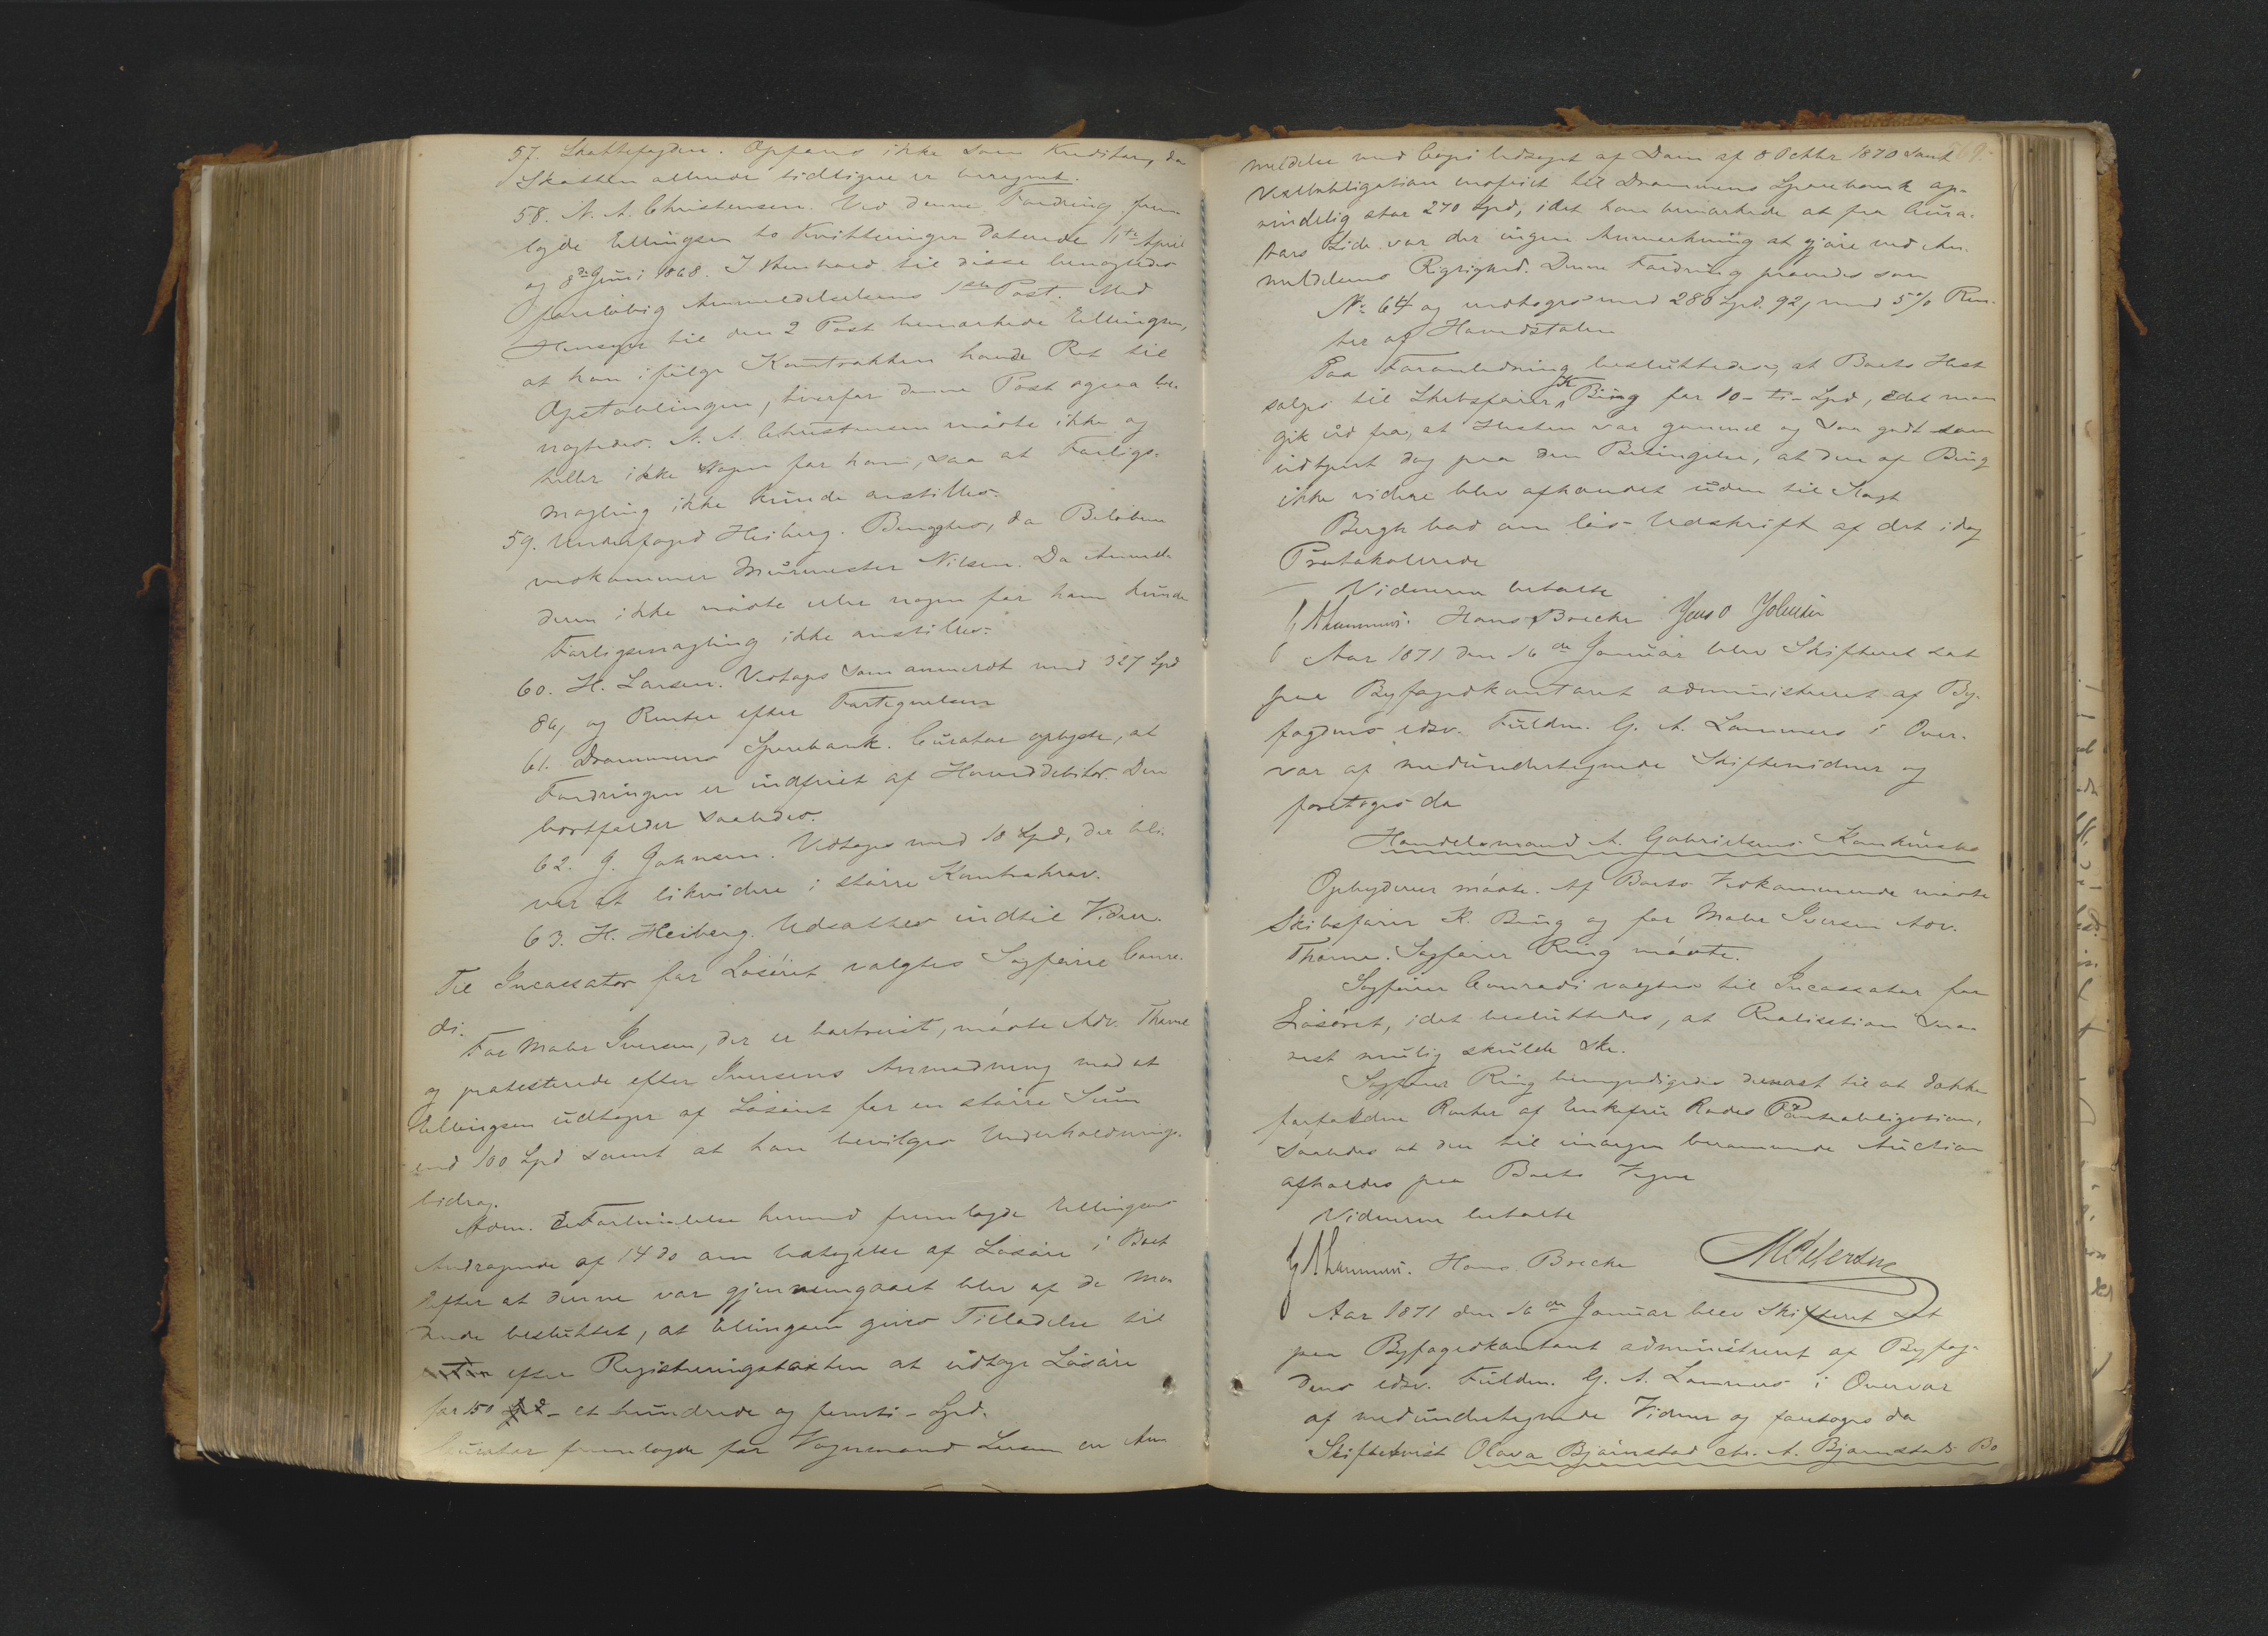 57. Skattefogden. Opføres ikke som Kreditor, da
Skatten allerede tidligere er beregnet.
58. N. A. Christensen. Ved denne Fordring frem-
lagde Ellingsen to Kvitteringer daterede 11te April
og 8de Juni 1868. I Henhold til disse benægtedes
foreløbig Anmeldelsens 1ste Post. Med
Hensyn til den 2 Post bemærkede Ellingsen,
at han ifølge Kontrakten havde Ret til
Opstablingen, hvorfor denne Post ogsaa be-
nægtedes. N. A. Christensen mødte ikke og
heller ikke Nogen for ham, saa at Forligs-
mægling ikke kunde anstilles.
59. Underfoged Heiberg. Benægtes, da Beløbet
vedkommer Muurmester Nilsen. Da Anmel-
deren ikke mødte eller nogen for ham kunde
Forligsmægling ikke anstilles.
60. H. Larsen. Vedtages som anmeldt med 327 Spd
86, og Renter efter Fortegnelsen
61. Drammens Sparebank. Curator oplyste, at
Fordringen er indfriet af Hoveddebitor. Den
bortfalder saaledes.
62. J. Johnsen. Vedtages med 18 Spd, der bli-
ver at likvidere i større Kontrakrav.
63. H. Heiberg. Udsattes indtil Videre.
Til Incassator for Løsøret valgtes Sagfører Conra-
di.
For Maler Iversen, der er bortreist, mødte Adv. Thorne
og protesterede efter Iversens Anmodning mod at
Ellingsen udtager af Løsøret for en større Sum
end 100 Spd samt at han bevilges Underholdnings-
bidrag.
Adm. I Forbindelse hermed fremlagde Ellingsens
Andragende af 14 ds om Udtagelse af Løsøre i Boet
Efter at denne var gjennemgaaet blev af de Mø-
dende besluttet, at Ellingsen gives Tilladelse til
efter Registreringstaxten at udtage Løsøre
for 150 - et hundrede og femti - Spd.
Curator fremlagde for Vognmand Larsen en An-
69.
meldelse med Copi ledsaget af Dom af 8 Octbr 1870 samt
Vexelobligation indfriet til Drammens Sparebank op-
rindelig stor 270 Spd, idet han bemærkede at fra Cura-
tors Side var der ingen Anmerkning at gjøre ved An-
meldelsens Rigtighed. Denne Fordring prøvedes som
No 64 og vedtoges med 280 Spd. 92, med 5% Ren-
ter af Hovedstolen
Paa Foranledning besluttedes, at Boets Hest
solges til Skibsfører K Bing for 10 - ti - Spd, idet man
gik ud fra, at Hesten var gammel og saa godt som
udtjent dog paa den Betingelse, at den af Bing
ikke videre blev afhændet uden til Slagt
Bergh bad om løs Udskrift af det idag
Protokollerede
Vidnerne betalte
G A Lammers. Hans Boecke Jens O Johnsen
Aar 1871 den 16de Januar blev Skifteret sat
paa Byfogedkontoret administreret af By-
fogdens edsv. Fuldm. G. A. Lammers i Over-
var af medundertegnede Skiftevidner og
foretoges da
Handelsmand A. Gabrielsens Konkursbo
Opbyderen mødte. Af Boets Vedkommende mødte
Skibsfører K. Bing og for Maler Iversen Adv.
Thorne. Sagfører Ring mødte.
Sagfører Conradi valgtes til Incassator for
Løsøret, idet besluttedes, at Realisation sna-
rest mulig skulde ske.
Sagfører Ring bemyndigedes dernæst til at dække
forfaldne Renter af Enkefru Rodes Panteobligation,
saaledes at den til imorgen berammede Auction
afholdes paa Boets Vegne
Vidnerne betalte
G A Lammers. Hans Boecke
Aar 1871 den 16de Januar blev Skifteret sat
paa Byfogedkontoret administreret af Byfog-
dens edsv. Fuldm. G. A. Lammers i Overvær
af medundertegnede Vidner og foretoges da
Skiftetvist Olava Bjørnstad ctr. A. Bjørnstads Bo